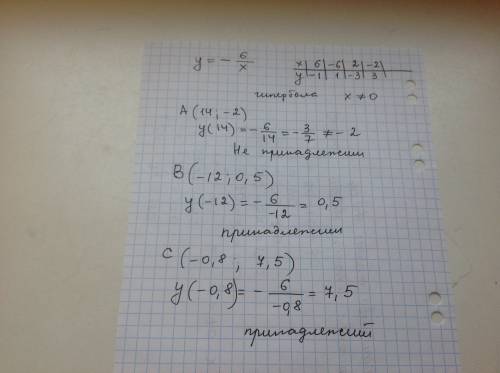 y = - 6/x
x | 6 | -6 | 2 | -2 |
y | -1 | 1 | -3 | 3 |
гипербола x ≠ 0
A (14; -2)
y(14) = - 6/14 = - 3/7 ≠ - 2
Не принадлежит
B (-12; 0,5)
y(-12) = - 6/-12 = 0,5
принадлежит
C (-0,8; 7,5)
y(-0,8) = - 6/-0,8 = 7,5
принадлежит